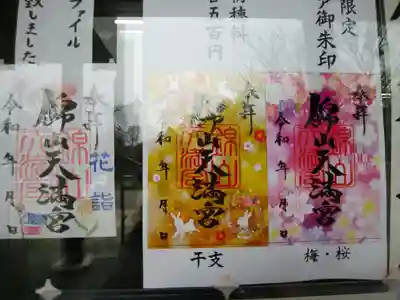 限定
御朱印
初穂料
五百円
ファイル
致しました
奉拝
花詣
錦山天満宮
令和 年 月 日
奉拝
錦山天満宮
令和 年 月 日
干支
奉拝
錦山天満宮
令和 年 月 日
梅・桜